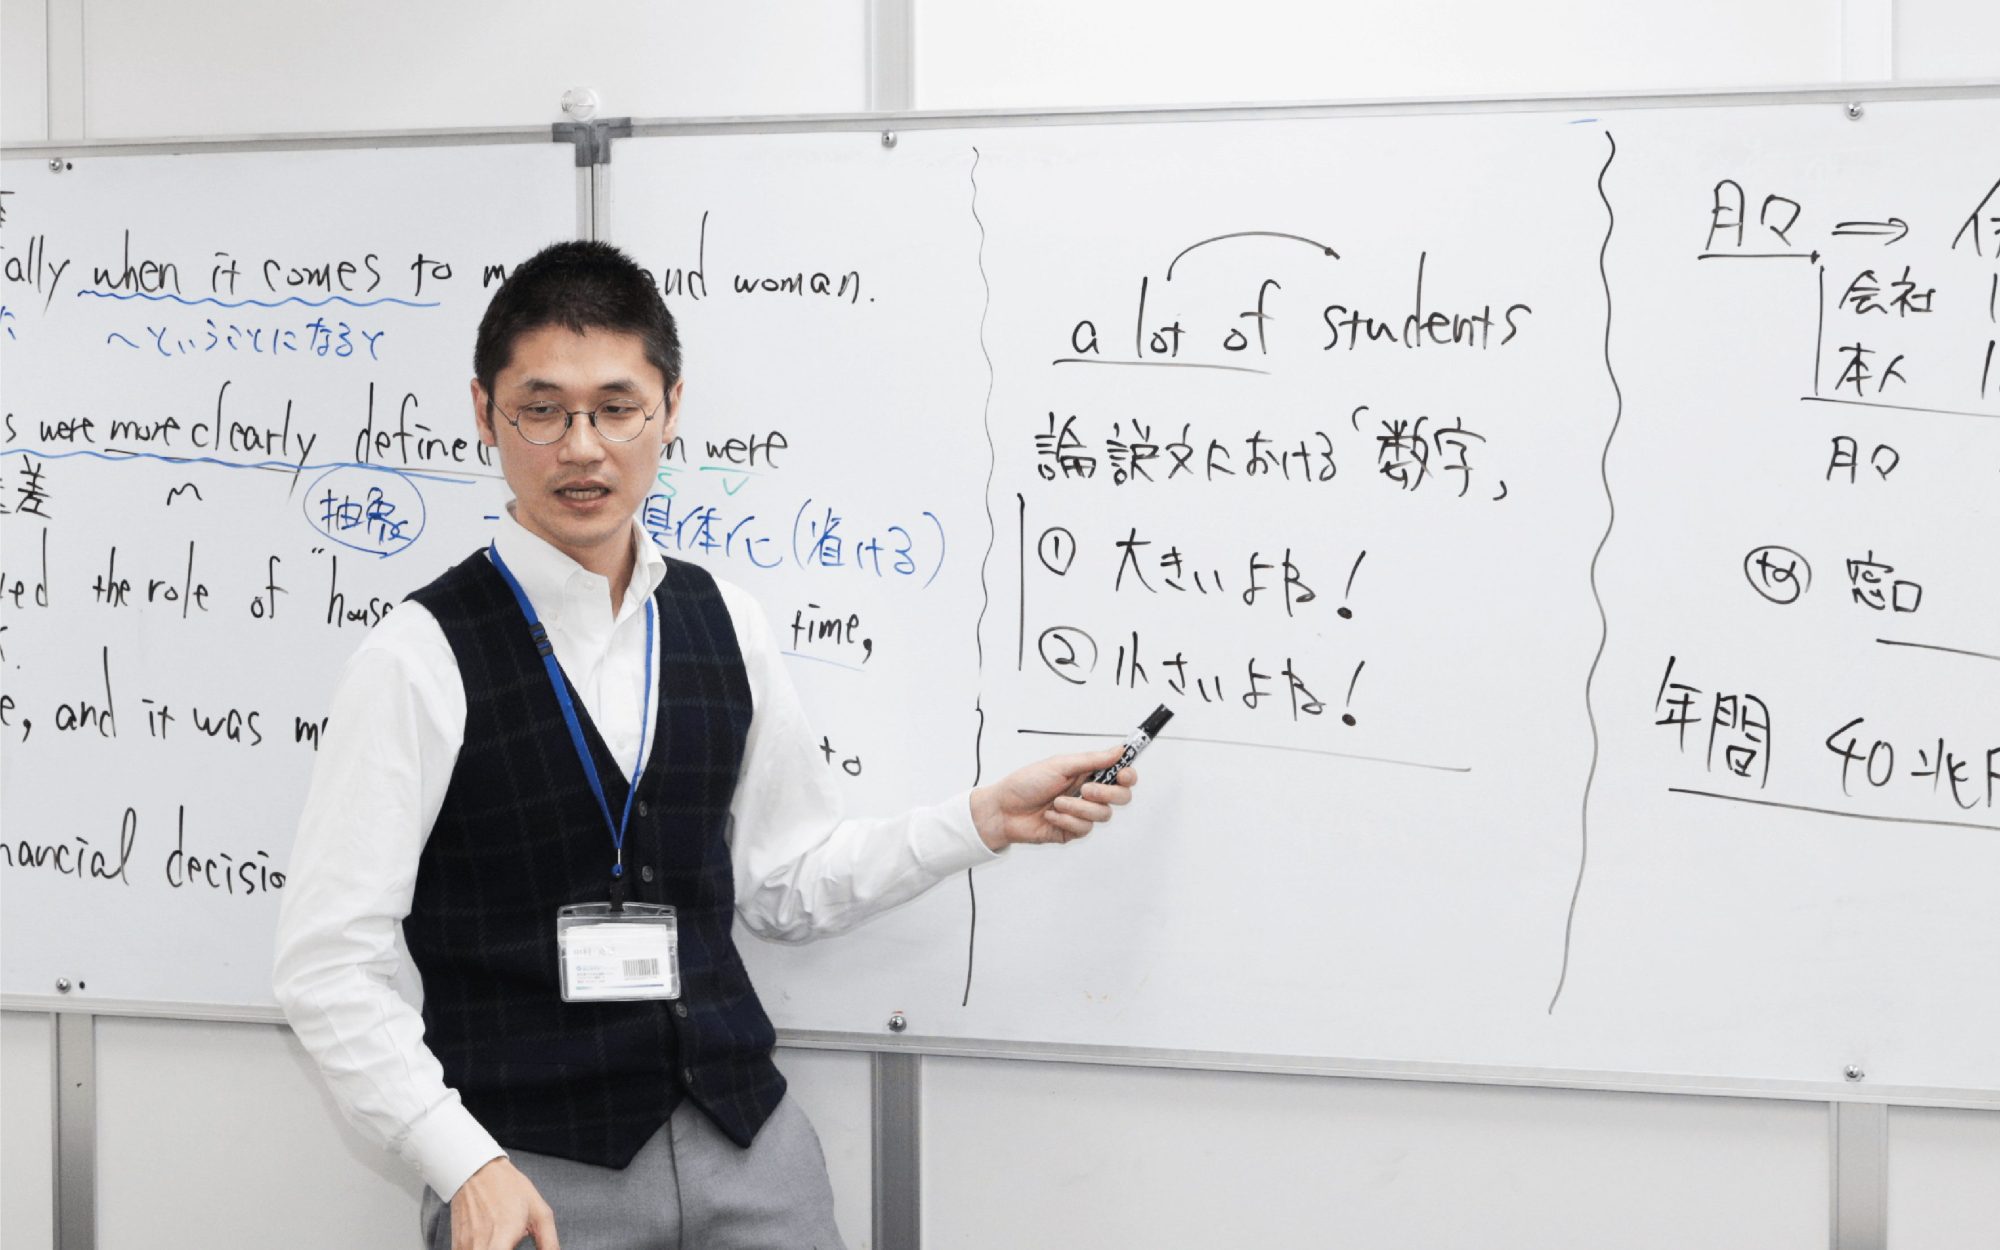 ally when it comes to m nd woman.
〜ということになると
s were more clearly define n were
差
抽象
具体化(省ける)
ed the role of "hous time,
e, and it was m to
nancial decisio
a lot of students
論説文における「数字」
① 大きいよね!
② 小さいよね!
月々 ⇒
会社
本人
月々
窓口
年間 40兆